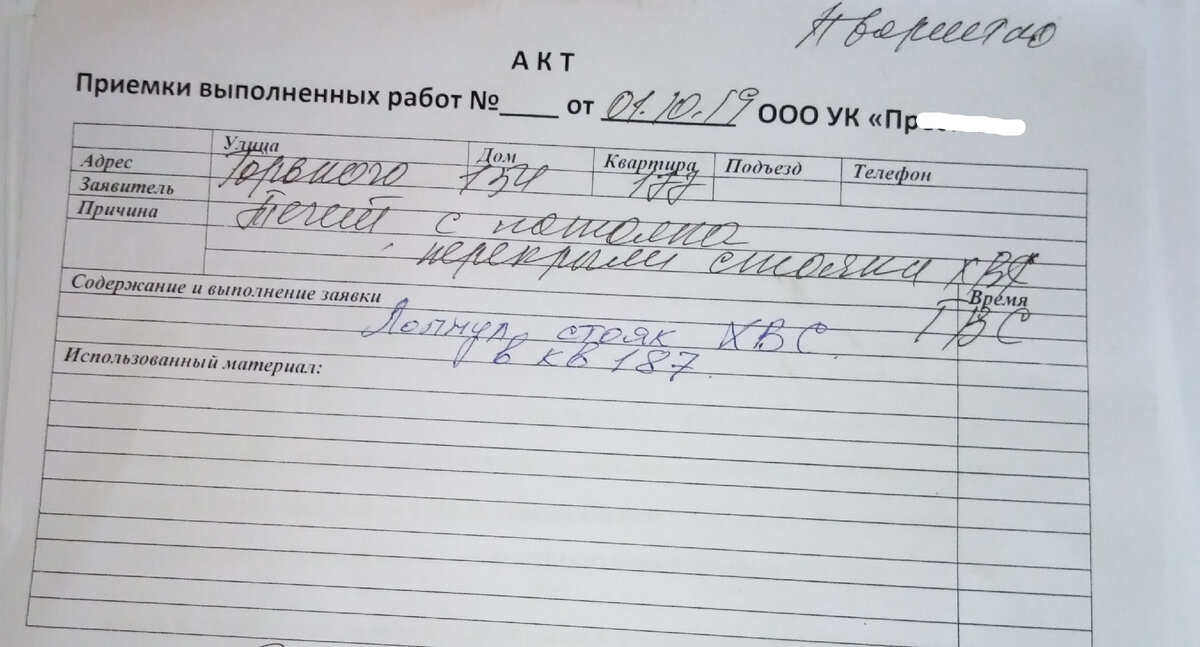 АКТ
Приемки выполненных работ №____ от 01.10.19 ООО УК «Пр
Улица Дом Квартира Подъезд Телефон
Адрес Горького 154 177
Заявитель
Причина Течет с потолка
перекрыли стояки ХВС
Содержание и выполнение заявки Время
ГВС
Лопнул стояк ХВС
в кв 187.
Использованный материал: